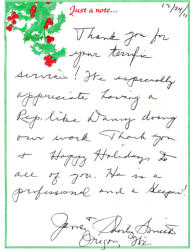 Just a note...
12/24/
Thank you for
your terrific
service! We especially
appreciate having a
Rep. like Danny doing
our work. Thank you
& Happy Holidays to
all of you. He is a
professional and a keeper!
Jane & Smith
Oregon, Wi.